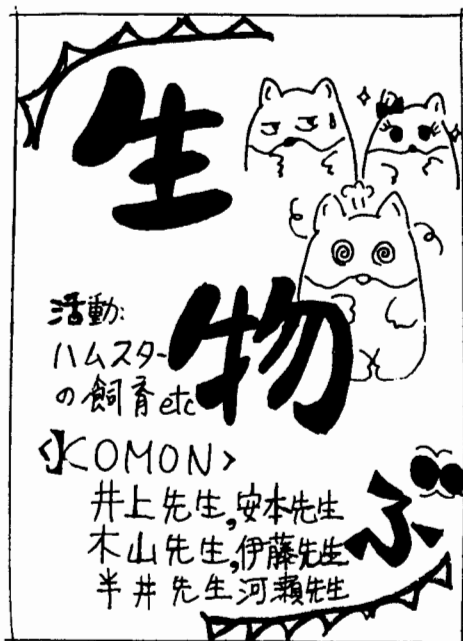 生物ぶ
活動:
ハムスター
の飼育etc
<KOMON>
井上先生,安本先生
木山先生,伊藤先生
半井先生 河瀬先生